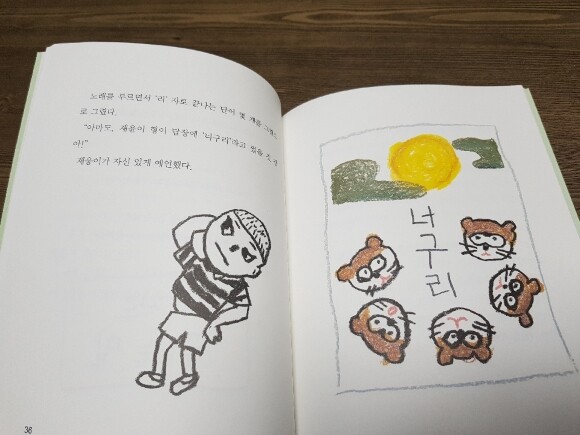 노래를 부르면서 '리' 자로 끝나는 단어 몇 개를 그림으
로 그렸다.
"아마도, 재율이 형이 답장에 '너구리'라고 썼을
아!"
재율이가 자신 있게 예언했다.
너
구
리
36